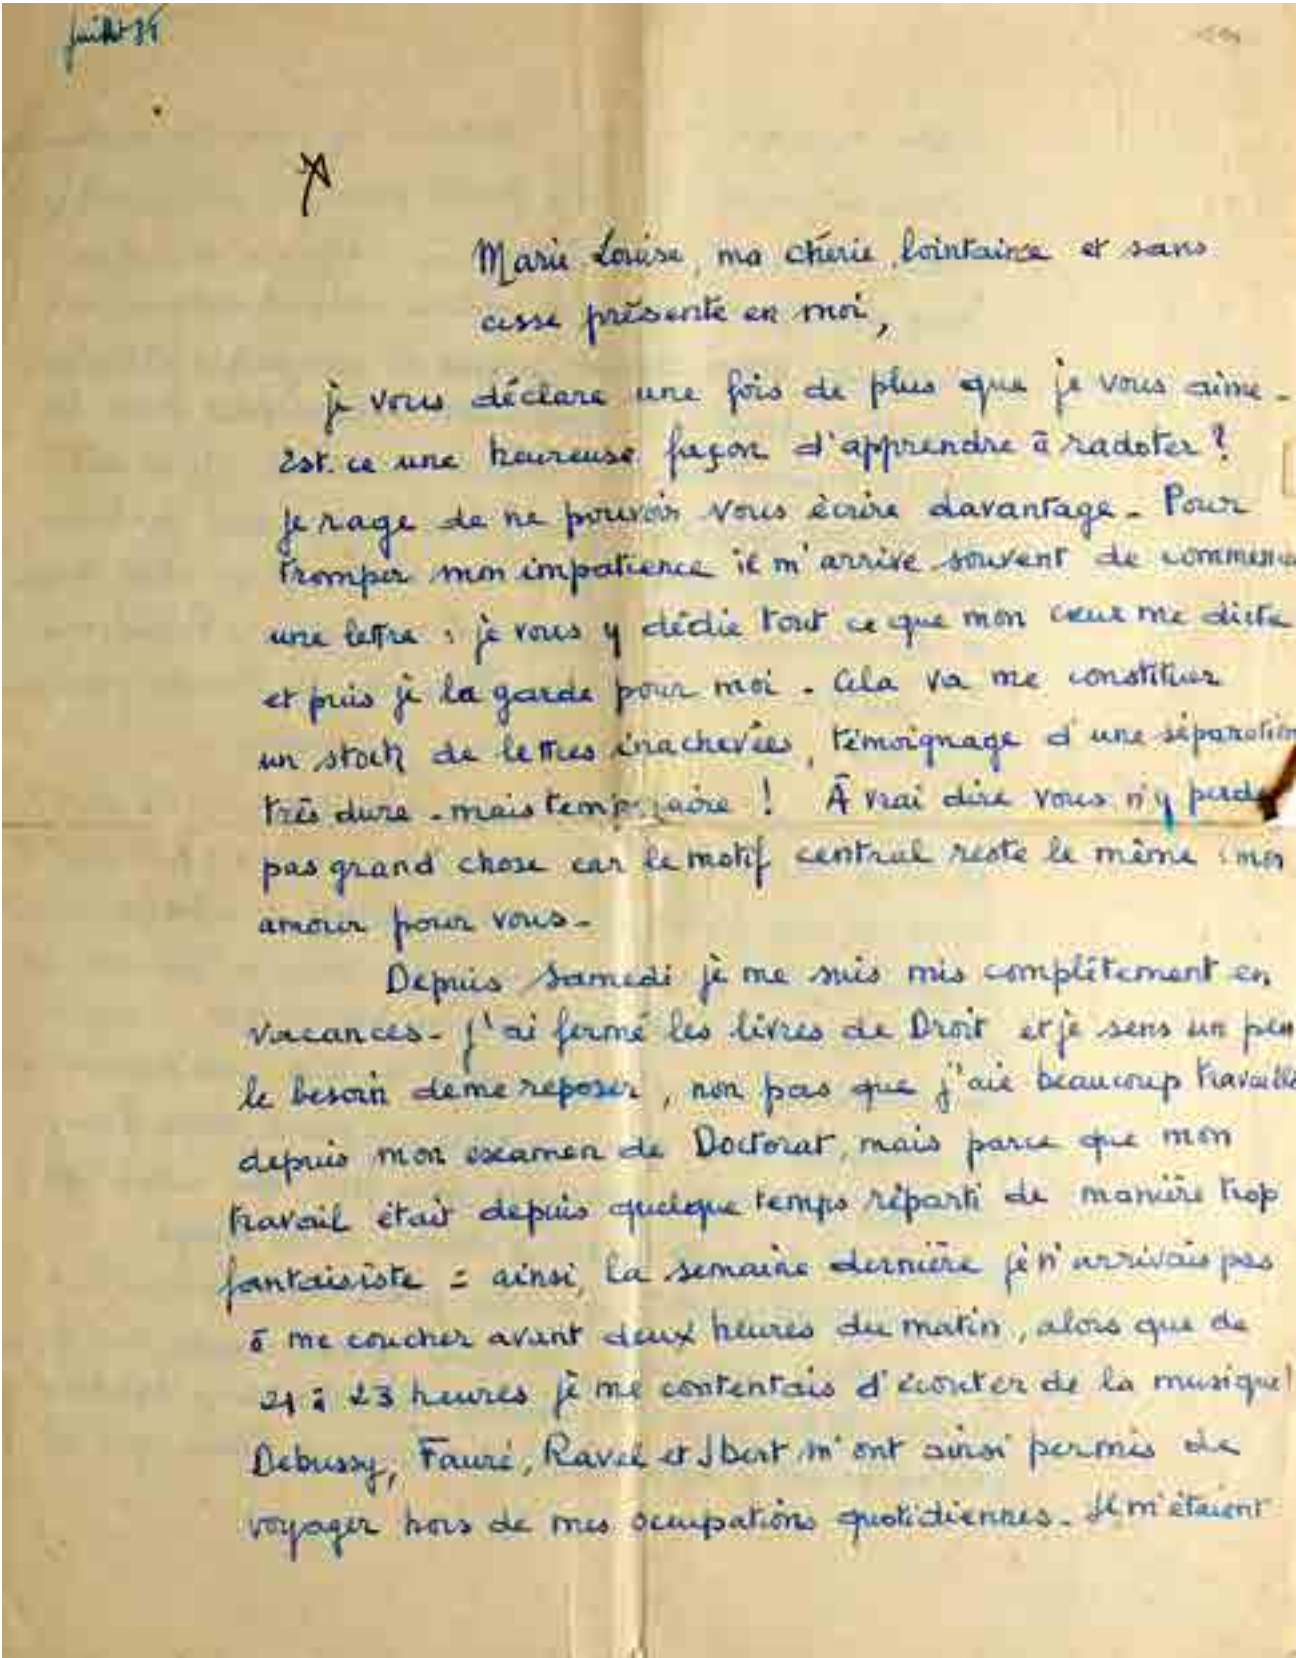 Marie Louise, ma chérie lointaine et sans
cesse présente en moi,
je vous déclare une fois de plus que je vous aime -
Est-ce une heureuse façon d'apprendre à radoter ?
je rage de ne pouvoir vous écrire davantage - Pour
tromper mon impatience il m'arrive souvent de commence
une lettre : je vous y dédie tout ce que mon cœur me dicte
et puis je la garde pour moi - Cela va me constituer
un stock de lettres inachevées, témoignage d'une séparation
très dure - mais temporaire ! À vrai dire vous n'y perde
pas grand chose car le motif central reste le même : mon
amour pour vous -
Depuis samedi je me suis mis complètement en
vacances - j'ai fermé les livres de Droit et je sens un peu
le besoin de me reposer, non pas que j'aie beaucoup travaillé
depuis mon examen de Doctorat, mais parce que mon
travail était depuis quelque temps réparti de manière trop
fantaisiste = ainsi, la semaine dernière je n'arrivais pas
à me coucher avant deux heures du matin, alors que de
21 à 23 heures je me contentais d'écouter de la musique !
Debussy, Fauré, Ravel et Ibert m'ont ainsi permis de
voyager hors de mes occupations quotidiennes - Il m'étaient